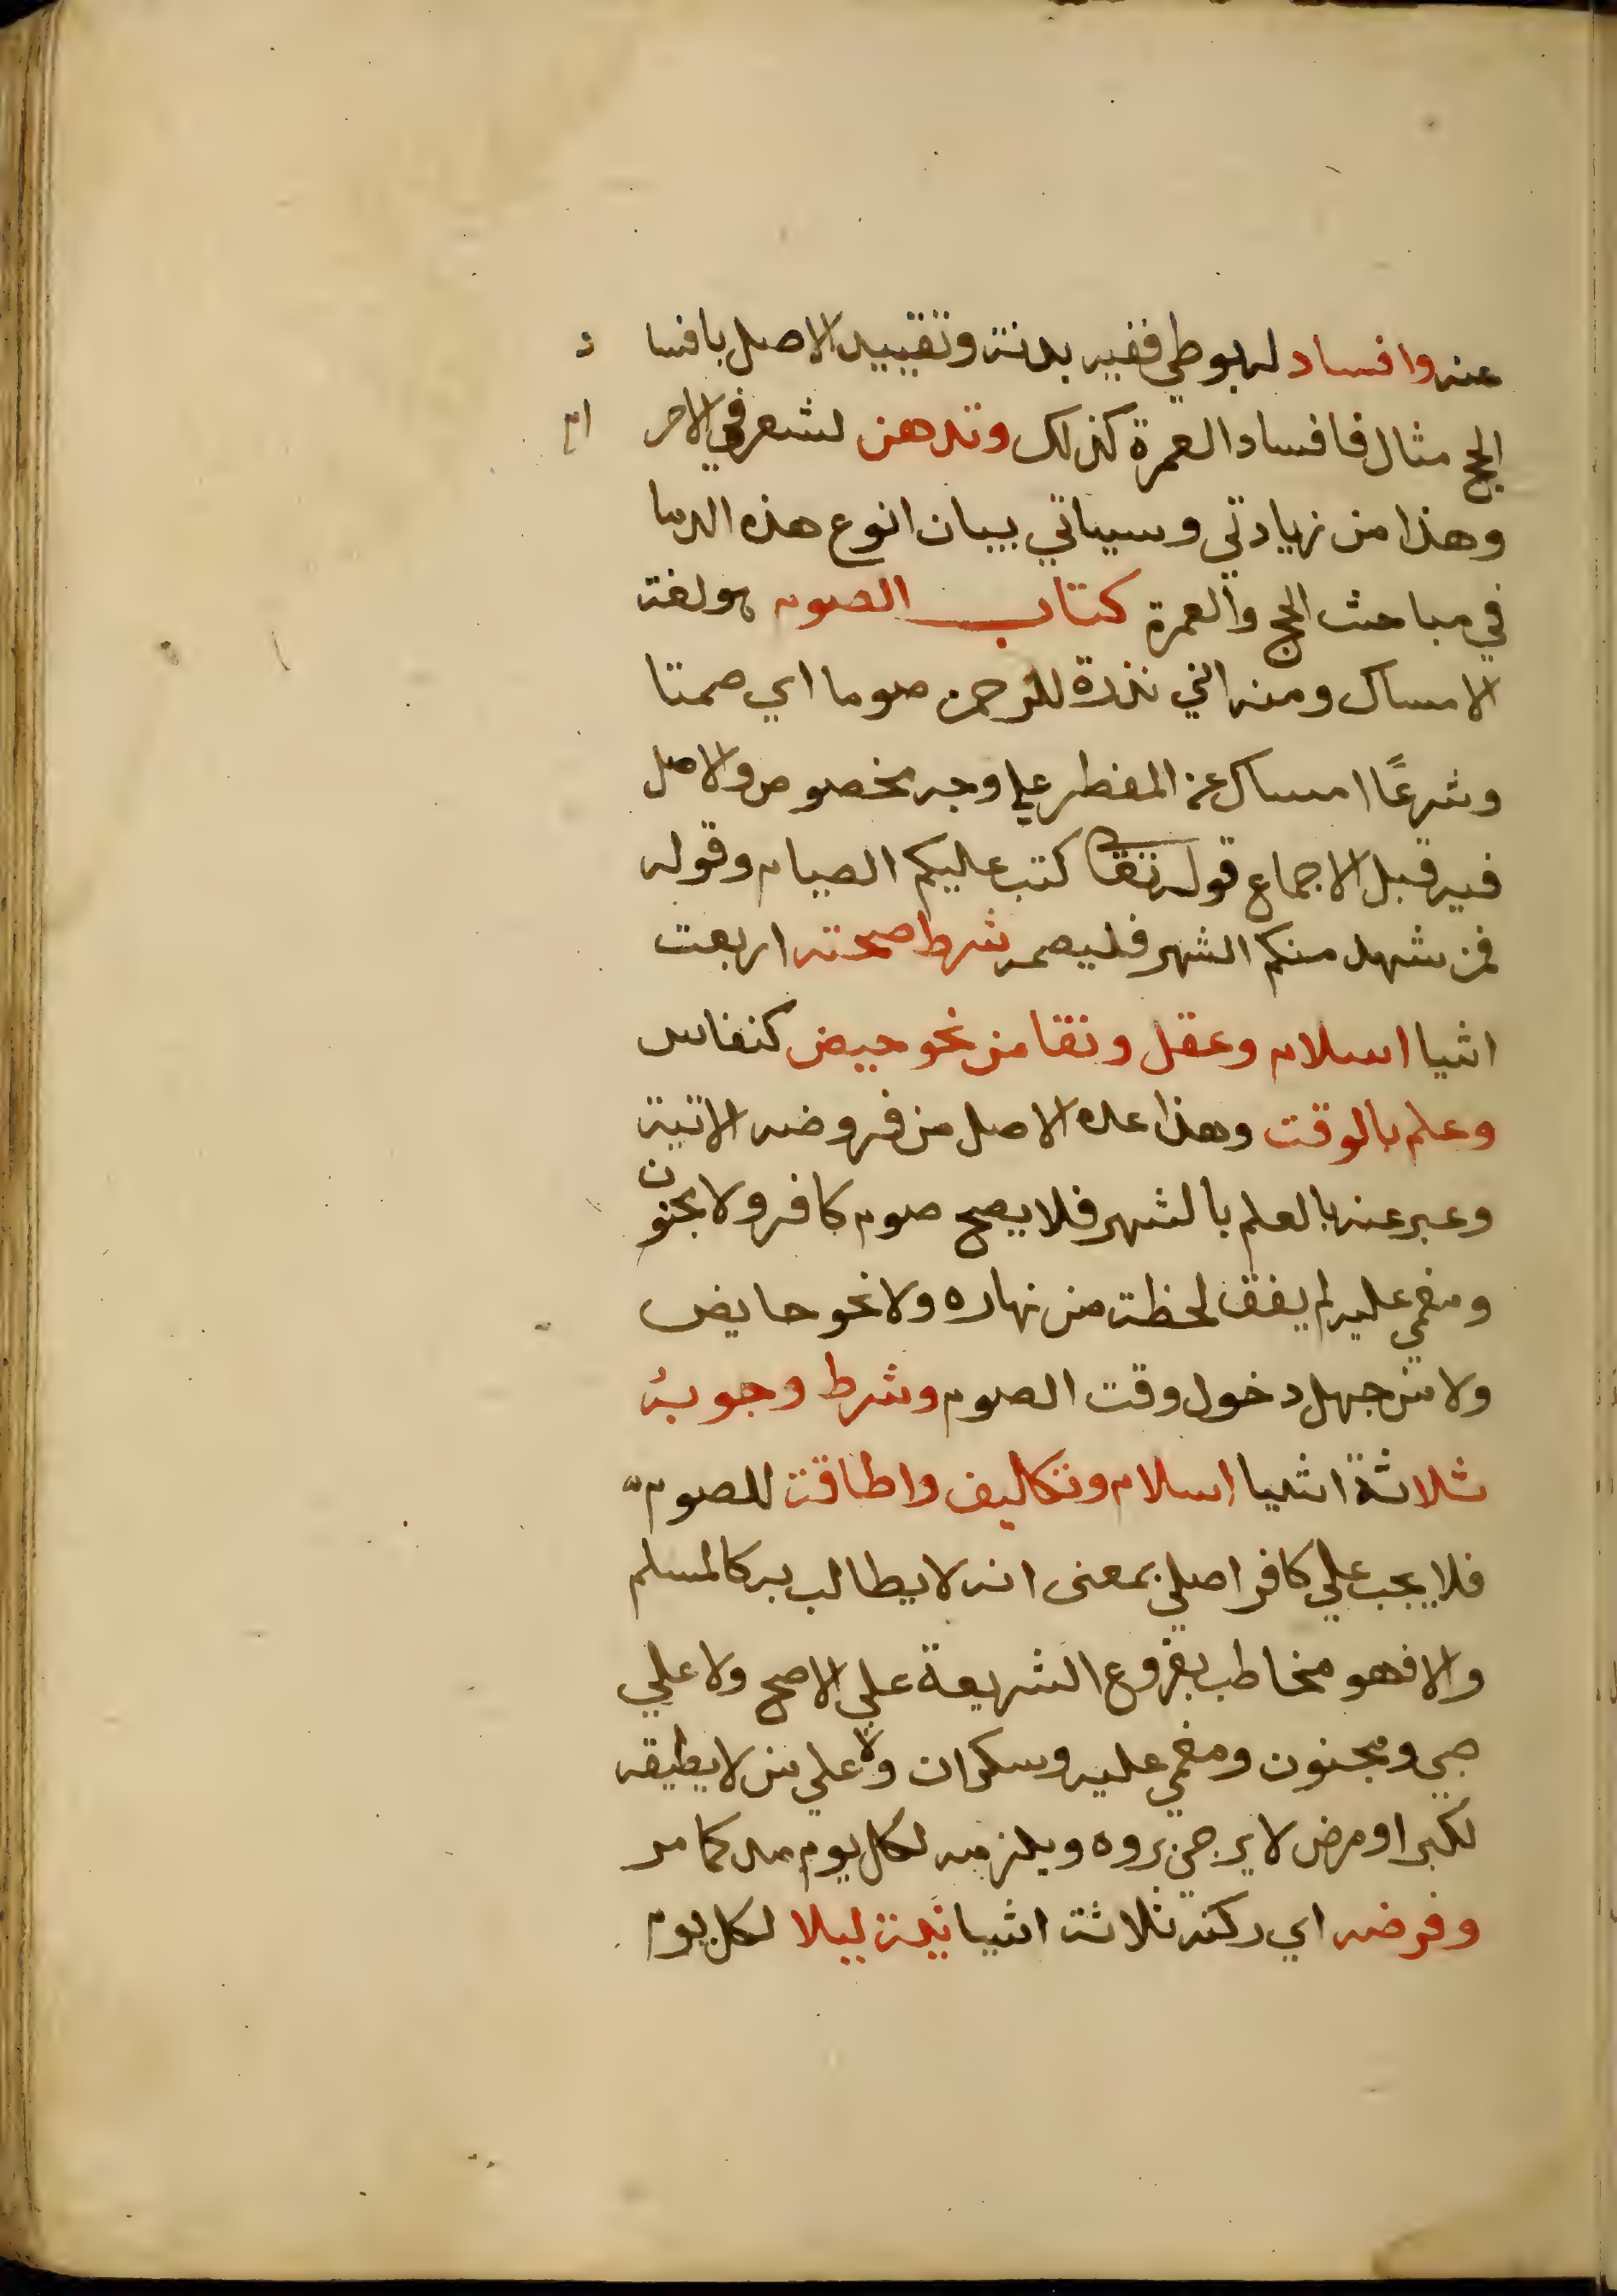 عنه وافساد له بوطي ففيه بدنة وتقييد الاصل بافسا د
الحج مثال فافساد العمرة كذلك وتدهن لشعر في الاحر ام
وهذا من زيادتي وسياتي بيان انوع هذه الدما
في مباحث الحج والعمرة كتاب الصوم هو لغة
الامساك ومنه اني نذرة للرحمن صوما اي صمتا
وشرعًا امساك عن المفطر علي وجه مخصوص والاصل
فيه قبل الاجماع قوله تعا كتب عليكم الصيام وقوله
فمن شهد منكم الشهر فليصمه شرط صحته اربعت
اشيا اسلام وعقل ونقا من نحو حيض كنفاس
وعلم بالوقت وهذا عده الاصل من فروضه الاتية
وعبر عنه بالعلم بالشهر فلا يصح صوم كافر ولا مجنون
ومغمي عليه لم يفق لحظة من نهاره ولا نحو حايض
ولا من جهل دخول وقت الصوم وشرط وجوبه
ثلاثة اشيا اسلام وتكاليف واطاقة للصوم
فلا يجب علي كافر اصلي بمعنى انه لا يطالب به كالمسلم
والا فهو مخاطب بفروع الشريعة علي الاصح ولا علي
صبي ومجنون ومغمي عليه وسكران ولا علي من لا يطيقه
لكبر او مرض لا يرجي بروه ويلزمه لكل يوم مد كما مر
وفرضه اي ركنه ثلاثة اشيا نية ليلا لكل يوم